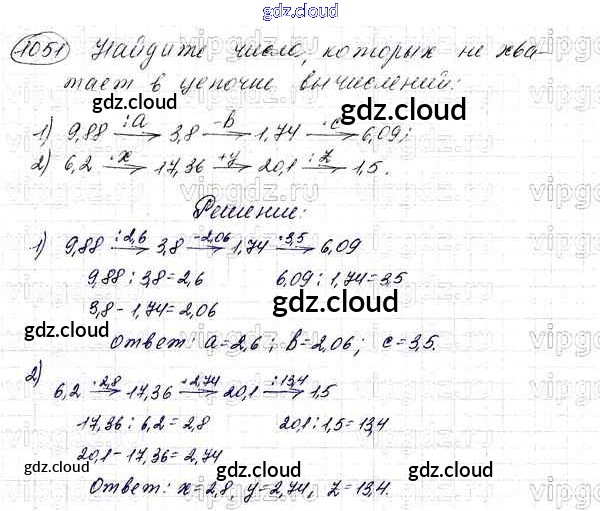 gdz.cloud
1051 Найдите числа, которых не хва-
тает в цепочке вычислений:
gdz.cloud
1) 9,88 :a→ 3,8 -b→ 1,74 ·c→ 6,09;
2) 6,2 ·x→ 17,36 +y→ 20,1 :z→ 1,5.
Решение:
gdz.cloud gdz.cloud
1) 9,88 :2,6→ 3,8 -2,06→ 1,74 ·3,5→ 6,09
9,88 : 3,8 = 2,6 6,09 : 1,74 = 3,5
3,8 - 1,74 = 2,06
gdz.cloud
gdz.cloud
Ответ: a = 2,6; b = 2,06; c = 3,5.
gdz.cloud
2) 6,2 ·2,8→ 17,36 +2,74→ 20,1 :13,4→ 1,5
17,36 : 6,2 = 2,8 20,1 : 1,5 = 13,4
20,1 - 17,36 = 2,74
gdz.cloud gdz.cloud gdz.cloud
Ответ: x = 2,8, y = 2,74, z = 13,4.